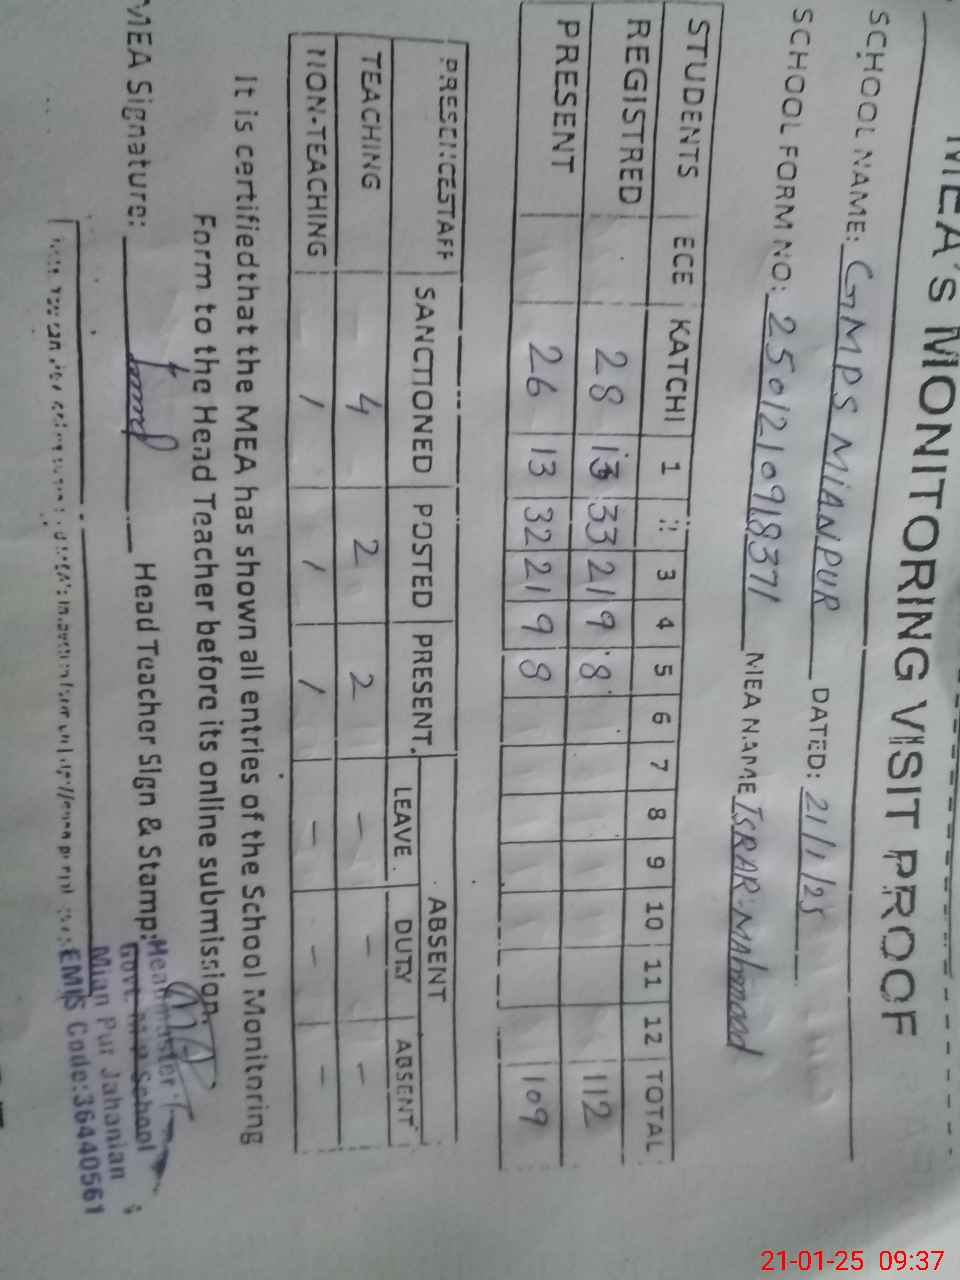 MEA's MONITORING VISIT PROOF
SCHOOL NAME: GMPS MIANPUR DATED: 21/1/25
SCHOOL FORM NO: 2501210918371 MEA NAME ISRAR Mahmood
STUDENTS ECE KATCHI 1 2 3 4 5 6 7 8 9 10 11 12 TOTAL
REGISTRED 28 13 33 21 9 8 112
PRESENT 26 13 32 21 9 8 109
PRESENCE STAFF SANCTIONED POSTED PRESENT ABSENT
LEAVE DUTY ABSENT
TEACHING 4 2 2 - - -
NON-TEACHING / / / - - -
It is certified that the MEA has shown all entries of the School Monitoring
Form to the Head Teacher before its online submission.
MEA Signature: Head Teacher Sign & Stamp:
Headmaster
Govt. M.P School
Mian Pur Jahanian
EMIS Code:36440561
21-01-25 09:37